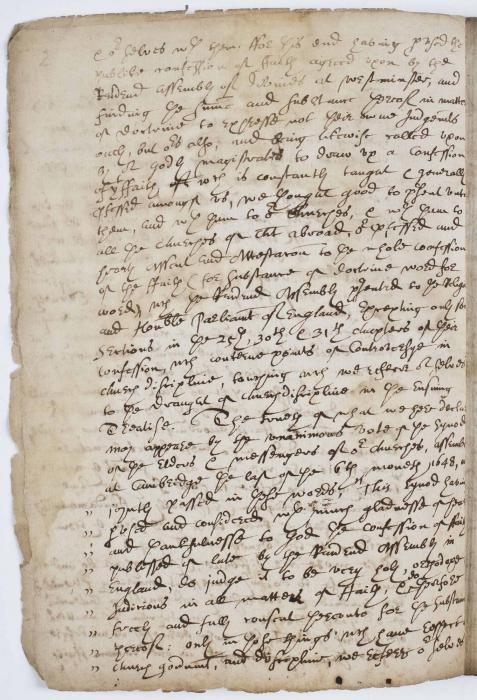 2
or selves wth them. ffor this end having p'used the
publike confession of faith agreed upon by the
Revrend Assembly of Divines at westminster, and
finding the sume and substance thereof in matters
of doctrine to expresse not their owne Judgmts
onely, but ors also; and being likewise called upon
by or godly magistrates to draw up a Confession
of yt faith wch is constantly taught & generally
p'fessed amongst us, we thought good to p'sent unto
them, and wth them to or churches, & wth them to
all the churches of Cht abroad, or p'fessed and
hearty assent and Attestation to the whole confession
of the faith (for substance of doctrine word for
word) wch the Revrend Assembly p'sented to the Religi
and Honble Parliamt of England; Excepting only so
Sections in the 25th, 30th & 31th chapters of their
confession, wch concerne points of Controversye in
church discipline, touching wch we referre or selves
to the draught of church discipline in the ensuing
Treatise. The truth of what we here declare
may appeare by the unanimous vote of the Synod
of the Elders & messengers of or churches, assembl
at Cambridge the last of the 6th month 1648,
„ joyntly passed in these words, This Synod having
„ p'used and considered wth much gladnesse of heart
„ and thankfulnesse to God the Confession of faith
„ published of late by the Revrend Assembly in
„ England, do judge it to be very holy, orthodoxe
„ Judicious in all matters of Faith, & do therefore
„ freely and fully consent thereunto for the substance
„ thereof. only in those things wch have respect
„ church governmt, and discipline, we referre or selves